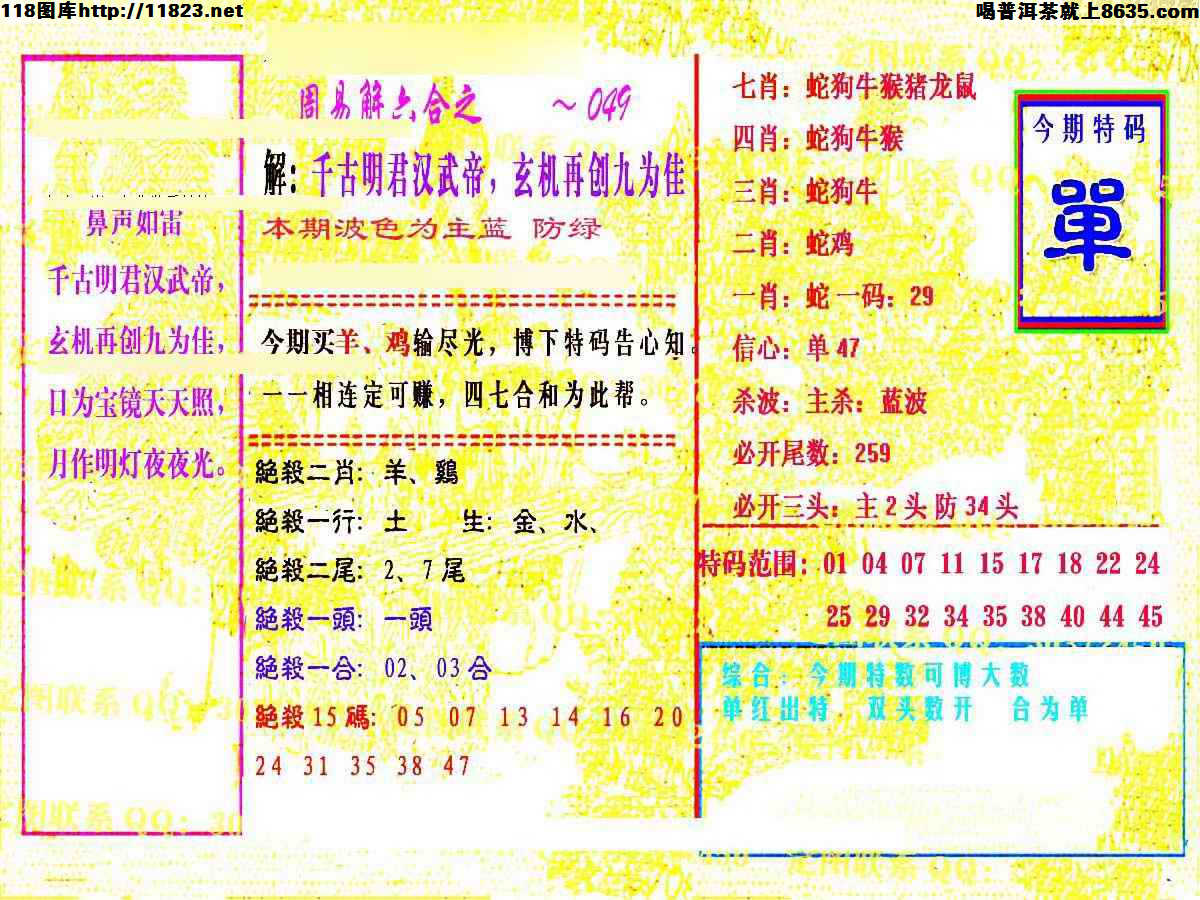 118图库http://11823.net
喝普洱茶就上8635.com
鼻声如雷
千古明君汉武帝，
玄机再创九为佳，
口为宝镜天天照，
月作明灯夜夜光。
周易解六合之 ～049
解：千古明君汉武帝，玄机再创九为佳
本期波色为主蓝 防绿
今期买羊、鸡输尽光，博下特码告心知。
一一相连定可赚，四七合和为此帮。
絕殺二肖：羊、鷄
絕殺一行：土 生：金、水、
絕殺二尾：2、7尾
絕殺一頭：一頭
絕殺一合：02、03合
絕殺15碼：05 07 13 14 16 20
24 31 35 38 47
七肖：蛇狗牛猴猪龙鼠
四肖：蛇狗牛猴
三肖：蛇狗牛
二肖：蛇鸡
一肖：蛇 一码：29
信心：单47
杀波：主杀：蓝波
必开尾数：259
必开三头：主2头防34头
今期特码
單
特码范围：01 04 07 11 15 17 18 22 24
25 29 32 34 35 38 40 44 45
综合：今期特数可博大数
单红出特．双头数开 合为单
定图联系QQ：30
定图联系QQ：30